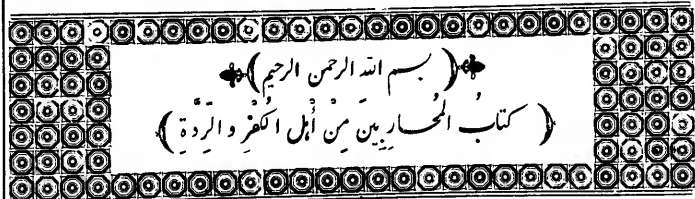 ﴿ بسم الله الرحمن الرحيم ﴾
﴿ كتابُ المُحارِبِينَ مِنْ أَهْلِ الكُفْرِ والرِّدَّةِ ﴾